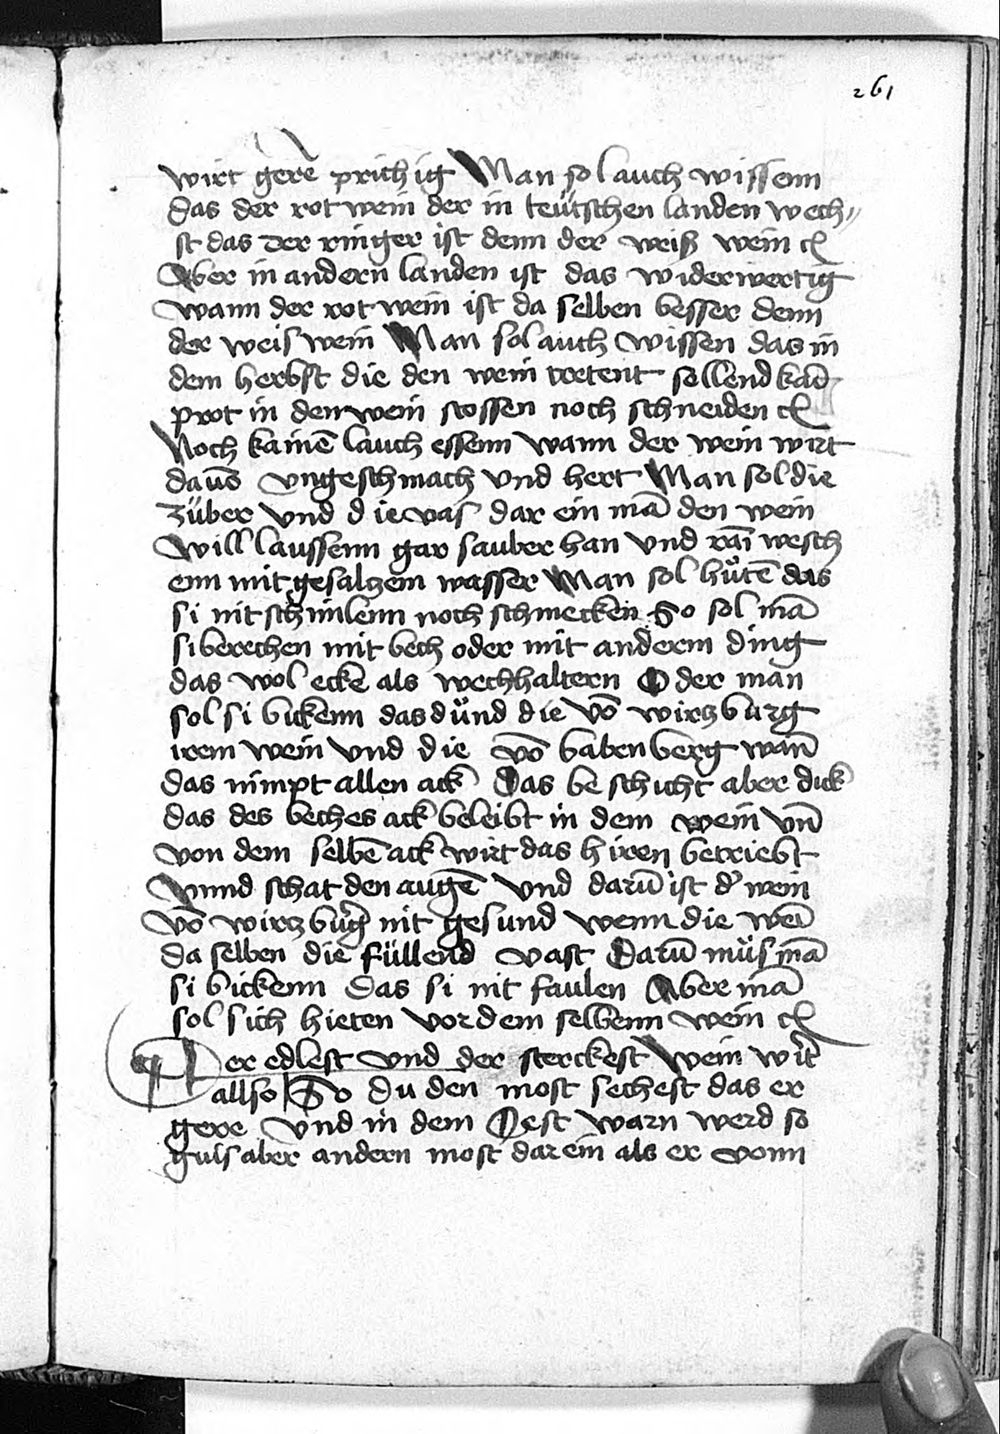 261
wirt gerē prichig Man sol auch wissenn
das der rot wein der in teütschen landen wech//
st das der ringer ist denn der weiß wein
Aber in andern landen ist das widerwertig
wann der rot wein ist da selben besser denn
der weis wein Man sol auch wissen das in
dem herbst die den wein tretent sollend kād
prot in den wein stossen noch schneiden
Noch kainē lauch essenn wann der wein wirt
dauō ungeschmach und hert Man sol die
züber und die vas dar ein mā den wein
will laussenn gar sauber han und rāi wesch
enn mit gesalzem wasser Man sol hůtē das
si nit schimlenn noch schmecken So sol mā
si berechen mit bech oder mit anderm ding
das wol ecke als wechhaltern Oder man
sol si bickenn das dünd die vō wirczburg
irem wein und die vō babenberg wañ
das nimpt allen ack Das beschicht aber dick
das des beches ack beleibt in dem wein vñ
von dem selbē ack wirt das hiren betriebt
Vnnd schat den augē und darū ist d' wein
vō wirczburg nit gesund wenn die wēi
da selben die füllend vast Darū müs mā
si bickenn das si nit faulen Aber mā
sol sich hieten vor dem selbenn wein
Der edlest und der sterckest wein wirt
allso So du den most sechest das er
gere und in dem Oest warn werd so
guis aber andern most darein als er vonn